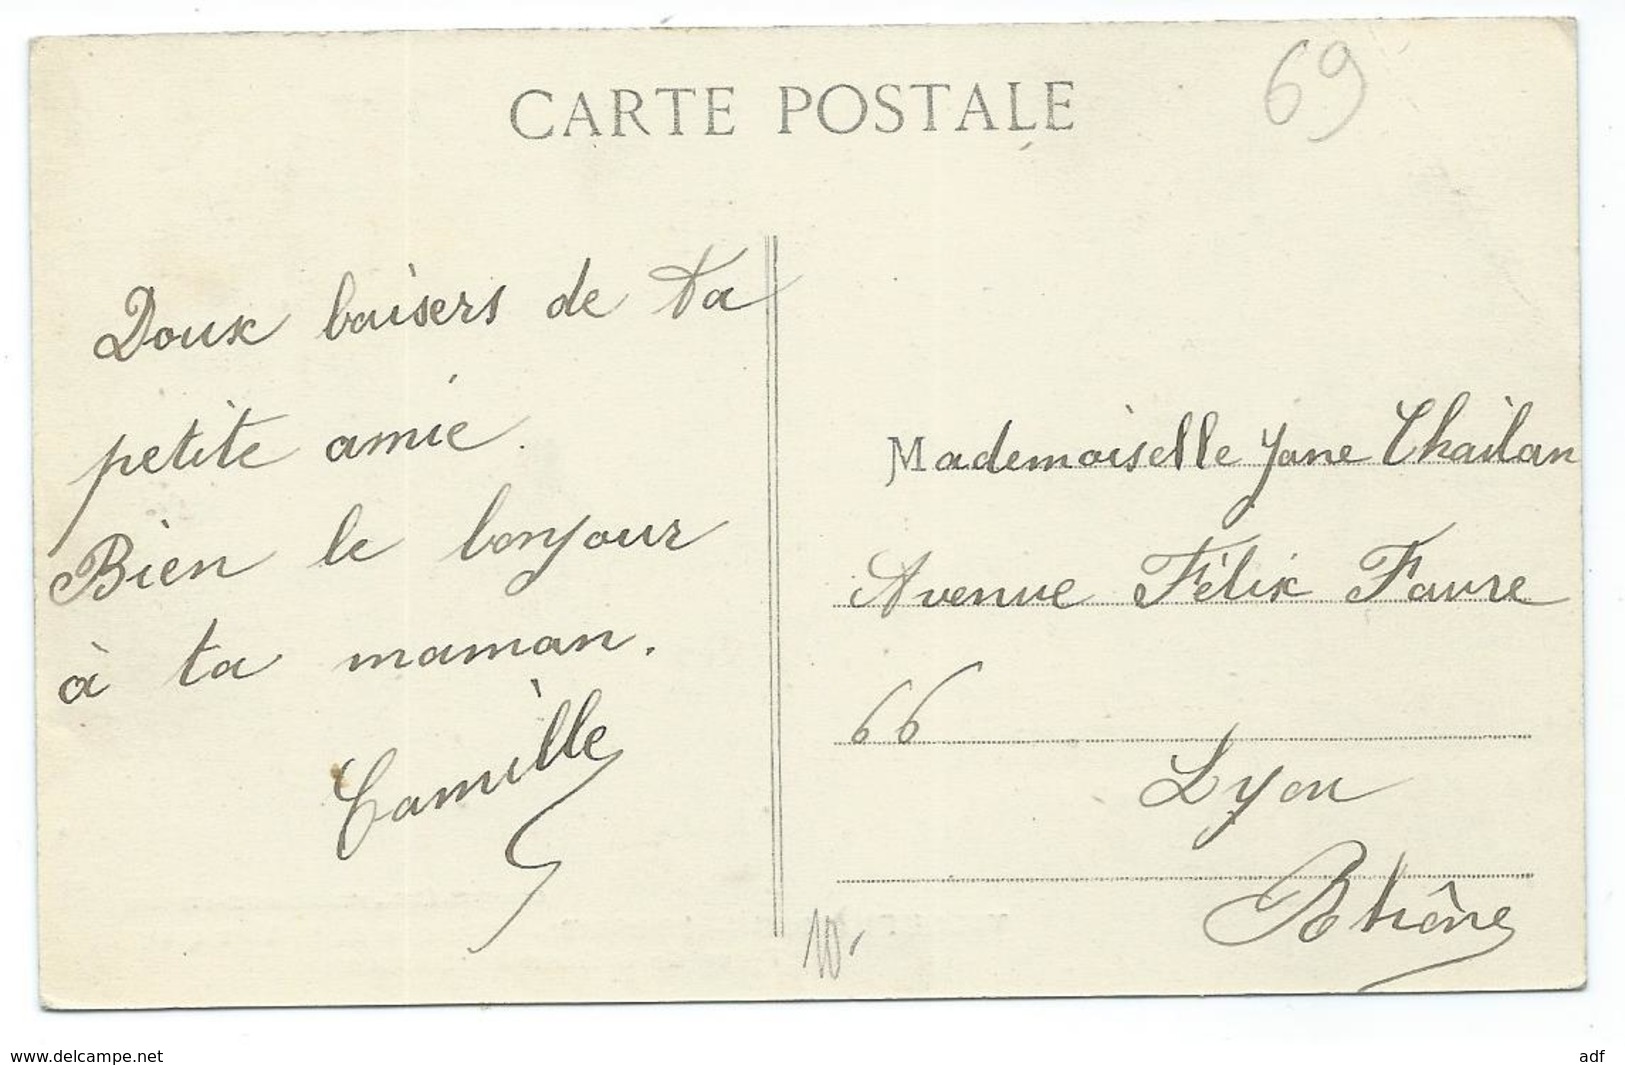 CARTE POSTALE
69
Doux baisers de ta
petite amie.
Bien le bonjour
à ta maman.
Camille
Mademoiselle Jane Chailan
Avenue Félix Faure
66
Lyon
Rhône
10,
www.delcampe.net
adf